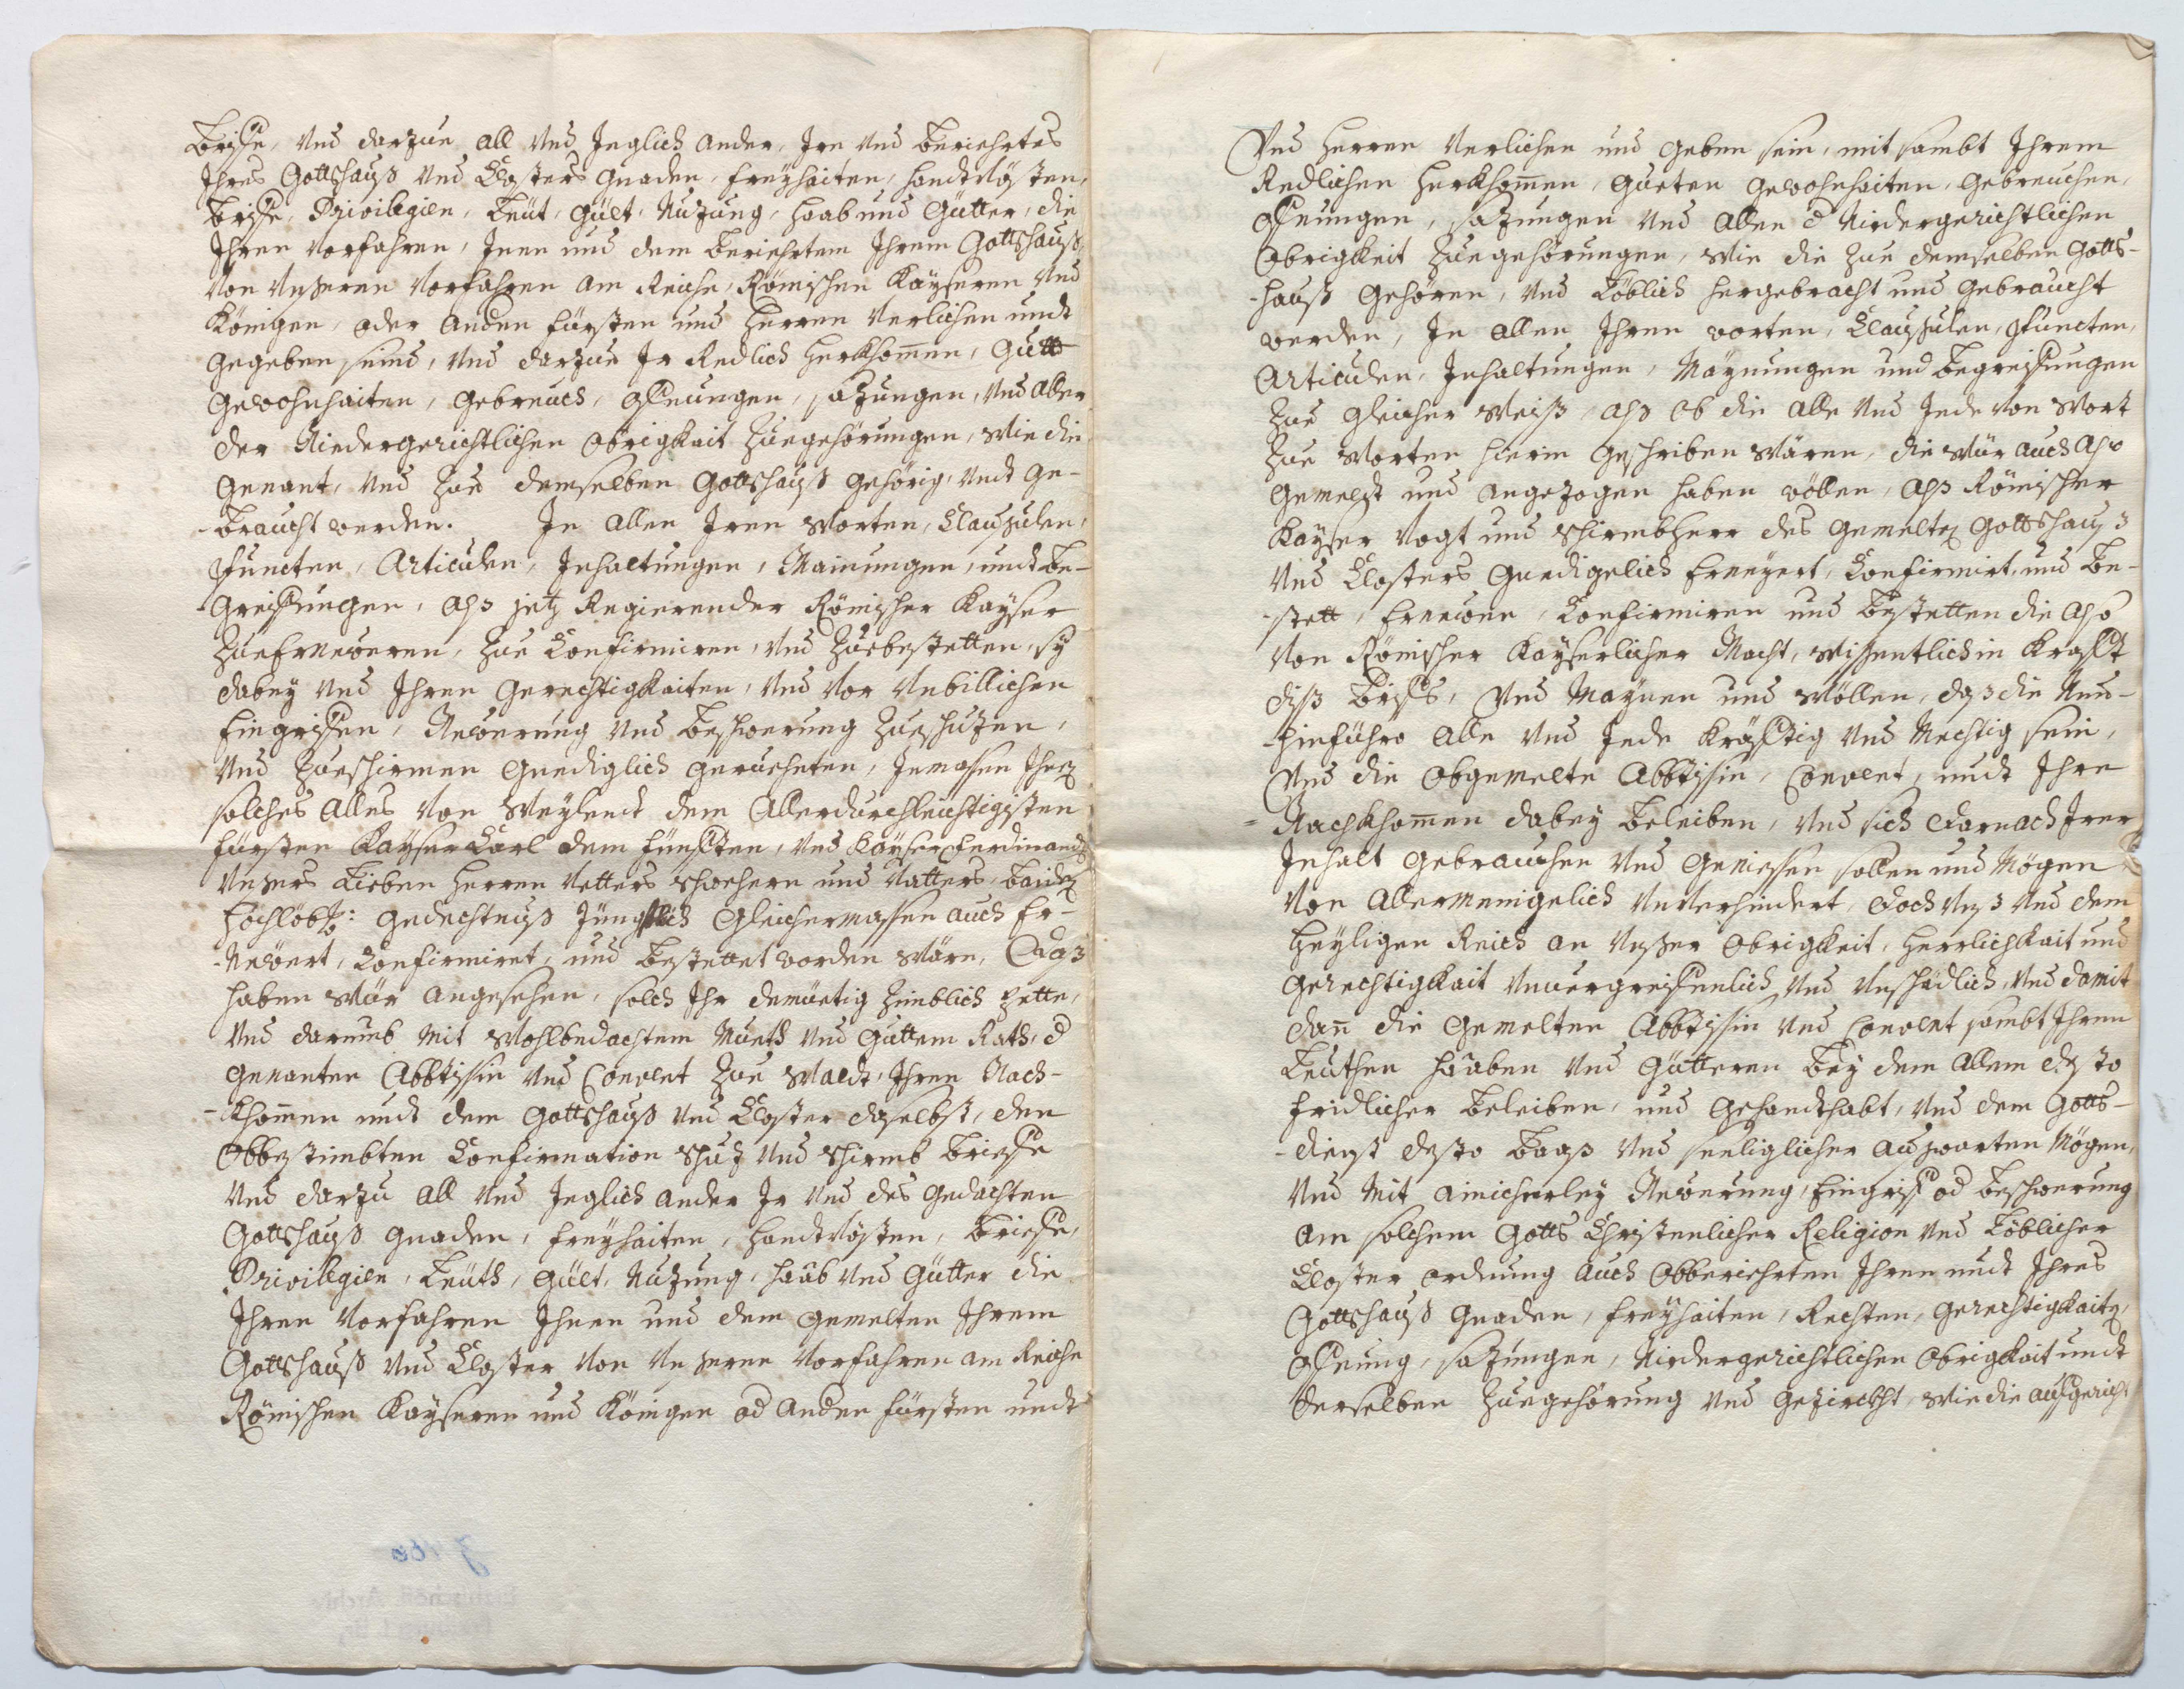 Brieffe, Und darzue all Und Jeglich ander, Ire Und Berierhrtes
Ihres Gottshauß Und Closters Gnaden, Freyhaiten, Handtvösten,
Brieffe, Privilegien, Leüt, Gült, Nuzung, Haab und Gütter, die
Ihren Vorfahren, Inen und dem Berierhrtem Ihrem Gottshauß
Von Unseren Vorfahren am Reiche, Römischen Kayseren Und
Königen, oder anden Fürsten und Herren Verlichen undt
Gegeben seind, Und darzue Ir Redlich Herkhommen, Gutt
Gewohnhaiten, Gebreuch, Offnungen, Sazungen, Und aller
der Nidergerichtlichen Obrigkait Zuegehörungen, Wie die
Genant, Und Zue demselben Gottshauß Gehörig, Undt Ge-
-braucht werden. In allen Iren Worten, Clauzulen,
Puncten, Articulen, Inhaltungen, Mainungen, undt Be-
-greiffungen, alß jetz Regierender Römischer Kayser
Zue Erneweren, Zue Confirmiren, Und Zue bestetten, sy
dabey Und Ihren Gerechtigkaiten, Und Vor Unbillichen
Eingriffen, Newerung Und Beschwerung Zueschuzen,
Und Zueschirmen Gnediglich Geruechten, Inmasen Ihnen
solches alles Von Weylendt dem Allerdurchleüchtigisten
Fürsten Kayser Carl dem Fünfften, Und Kayser Ferdinandt
Unsers Lieben Herren Vetters Schwehern und Vatters, Baider
Hochlöbl: Gedechtnuß Jüngstlich Gleichermassen auch Er-
-Newert, Confirmiret, und Bestettet worden Wäre, Daß
haben Wür angesehen, solch Ihr demüetig Zimblich Bette,
Und darumb Mit Wohlbedachtem Mueth Und Guttem Rath, d
Genanten Abbtissin Und Convent Zue Waldt, Ihren Nach-
-khommen undt dem Gottshauß Und Closter daselbst, den
Obbestimbten Confirmation Schuz Und Schirmb Brieffe
Und darzu all Und Jeglich ander Ir Und des Gedachten
Gottshauß Gnaden, Freyhaiten, Handtvösten, Brieffe,
Privilegien, Leüth, Gült, Nuzung, Haab Und Gütter die
Ihren Vorfahren Ihnen und dem Gemelten Ihrem
Gottshauß Und Closter Von Unseren Vorfahren am Reiche
Römischen Kayseren und Königen od anden Fürsten undt
Und Herren Verlichen und Geben sein, mit sambt Ihrem
Redlichen Herkhommen, Gueten Gewohnhaiten, Gebreuchen,
Offnungen, Sazungen Und allen d Nidergerichtlichen
Obrigkeit Zuegehörungen, Wie die Zue demselben Gotts-
-hauß Gehören, Und Löblich hergebracht und Gebraucht
werden, In allen Ihren worten, Clauzulen, Puncten,
Articulen, Inhaltungen, Maynungen und Begreiffungen
Zue Gleicher Weiß, alß ob die alle Und Jede Von Wort
Zue Worten hierin Geschriben Wären, die Wür auch also
Gemeldt und angezogen haben wöllen, alß Römischer
Kayser Vogt und Schirmbherr des Gemelten Gottshauß
Und Closters Gnedigelich Erneyert, Confirmirt, und Be-
-stett, Ernewen, Confirmiren und Bestetten die also
Von Römischer Kayserlicher Macht, Wissentlich in Krafft
diß Brieffs, Und Maynen und Wöllen, daß die Nun-
-hinführo alle Und Jede Kräfftig Und Mechtig sein,
Und die Obgemelte Abbtissin, Convent, undt Ihre
-Nachkhommen dabey Beleiben, Und sich darnach Irer
Inhalt Gebrauchen Und Geniessen sollen und Mögen
Von Allermenigelich Unverhindert, doch Unß Und dem
Heyligen Reich an Unser Obrigkeit, Herrlichkait und
Gerechtigkait Unvergreiffenlich Und Unschädlich, Und damit
dan die Gemelten Abbtissin Und Convent sambt Ihren
Leuthen Haaben Und Gütteren Bey dem allem desto
Fridlicher Beleiben, und Gehandthabt, Und dem Gotts-
-dienst desto Baaß Und seeliglicher außwarten Mögen,
Und Mit ainicherley Newerung, Eingriff od Beschwerung
am solchem Gotts Christenlicher Religion Und Löblicher
Closter ordnung auch Obberierhrten Ihren undt Ihres
Gottshauß Gnaden, Freyhaiten, Rechten, Gerechtigkaiten,
Offnung, Sazungen, Nidergerichtlichen Obrigkait undt
derselben Zuegehörung Und Gezirckht, Wie die auffgericht